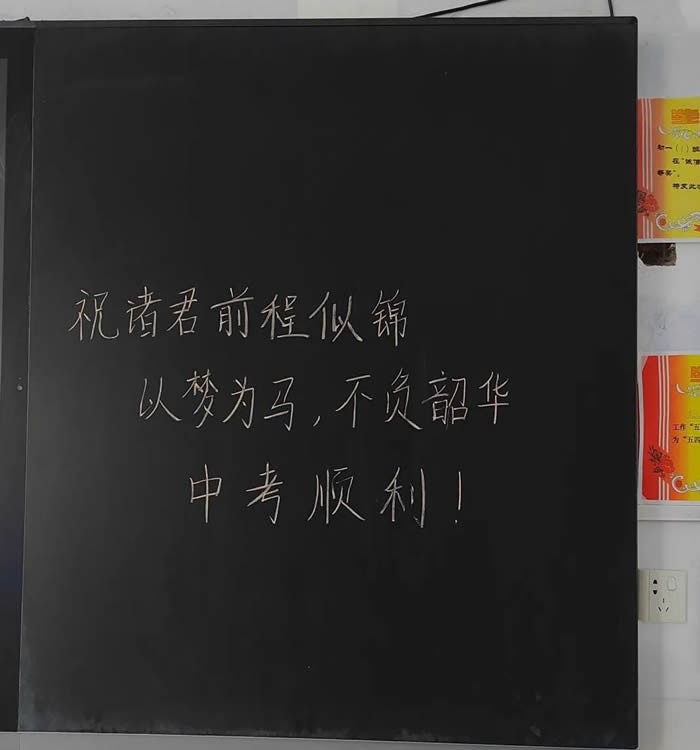 祝诸君前程似锦
以梦为马,不负韶华
中考顺利!
初一(1)班
在"
等奖"。
特发此
工作"五
为"五四